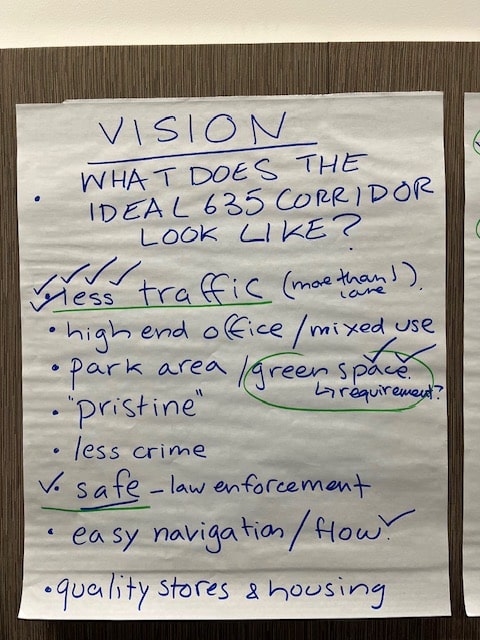 VISION
• WHAT DOES THE
IDEAL 635 CORRIDOR
LOOK LIKE?
• less traffic (more than 1 lane).
• high end office/mixed use
• park area/green space.
↳ requirement?
• "pristine"
• less crime
• safe - law enforcement
• easy navigation/flow.
• quality stores & housing